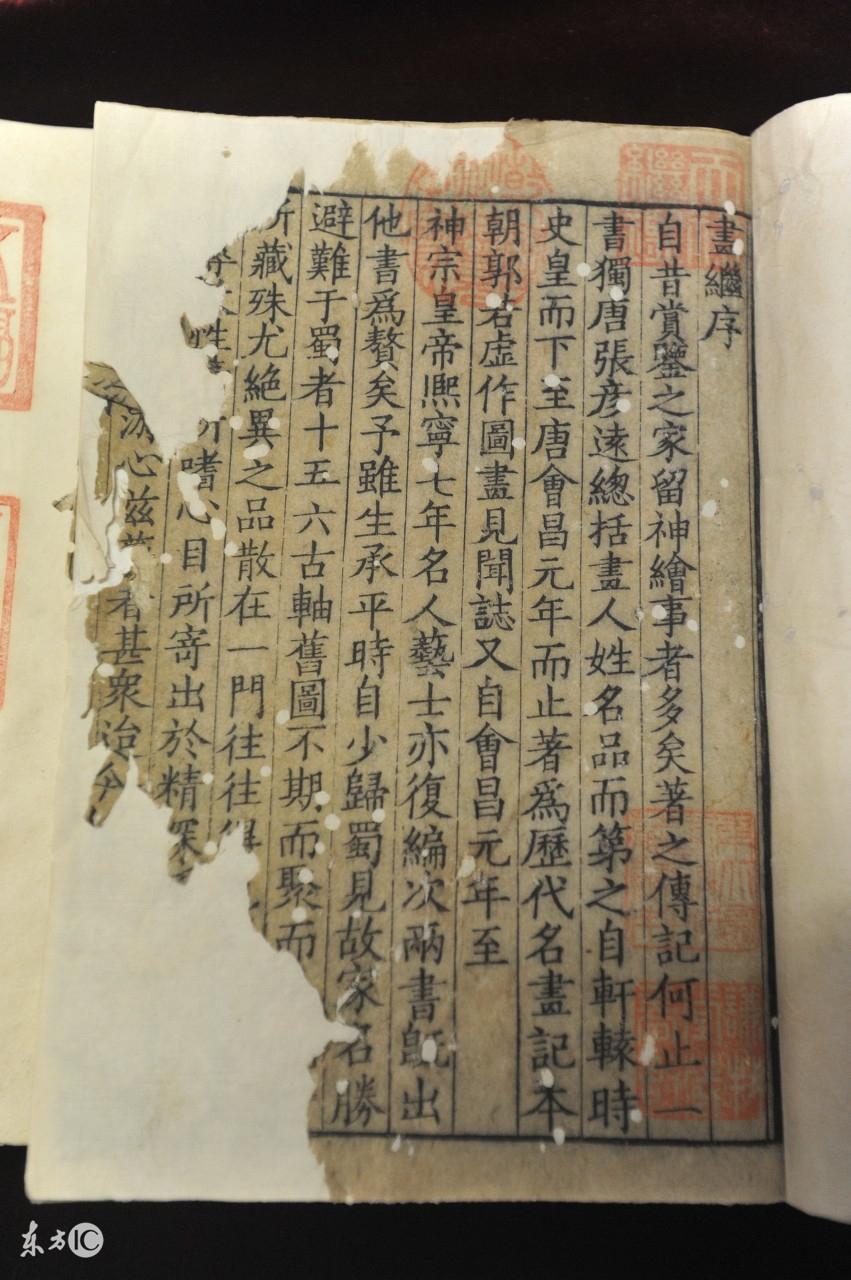 畫繼序
自昔賞鑒之家留神繪事者多矣著之傳記何止一
書獨唐張彥遠總括畫人姓名品而第之自軒轅時
史皇而下至唐會昌元年而止著為歷代名畫記本
朝郭若虛作圖畫見聞誌又自會昌元年至
神宗皇帝熈寧七年名人藝士亦復編次兩書旣出
他書為贅矣予雖生承平時自少歸蜀見故家名勝
避難于蜀者十五六古軸舊圖不期而聚而
所藏殊尤絶異之品散在一門往往得
性 所嗜心目所寄出於精深
游心茲藝者甚衆迨今
东方IC